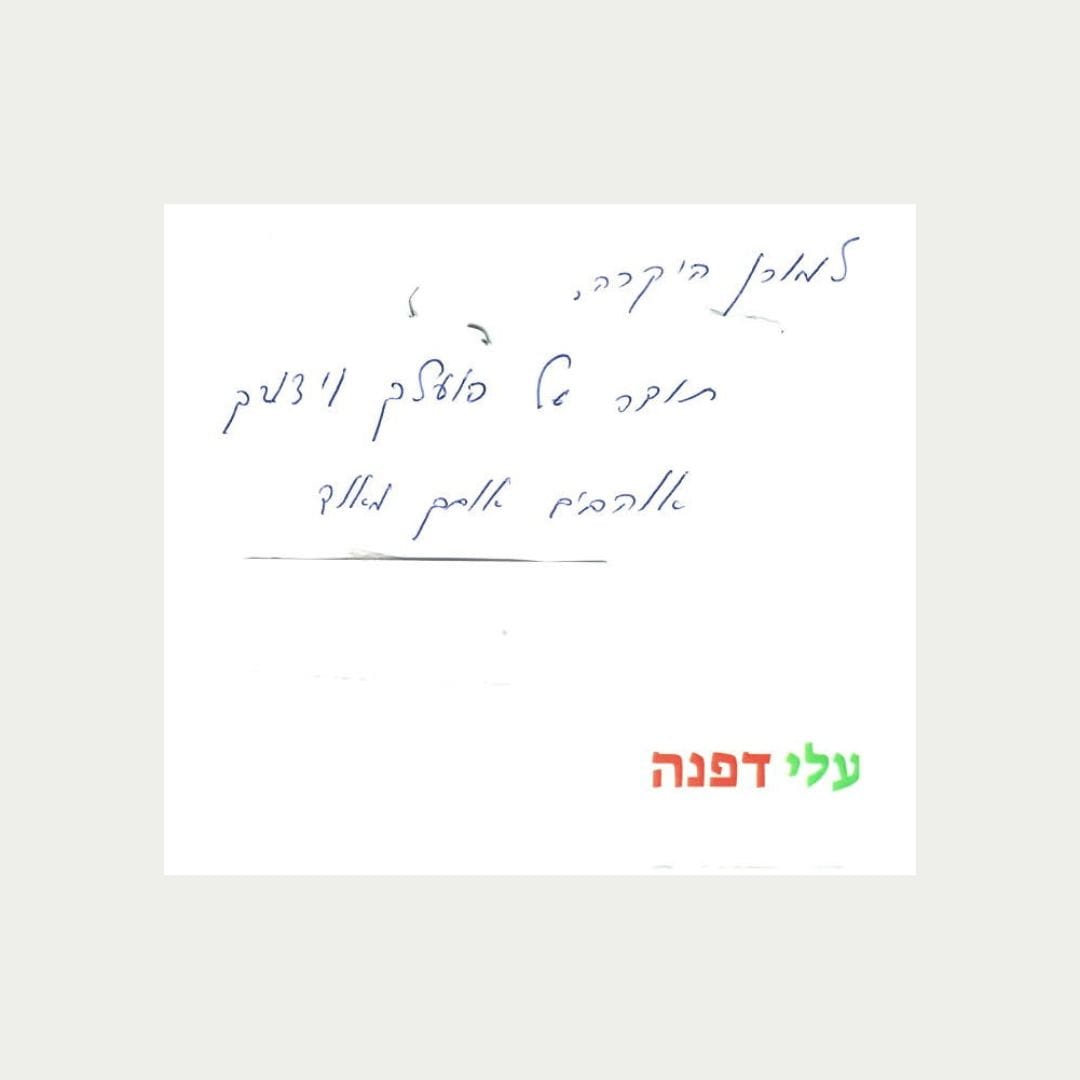 למורן היקרה,
תודה על פועלך וידעך
אוהבים אותך מאוד
עלי דפנה